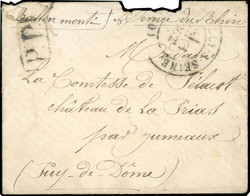 Ballon monté Armée du Rhin
P.P.
SEINE
Madame
La Comtesse de
château de La Prias
par Jumeaux
(Puy-de-Dôme)